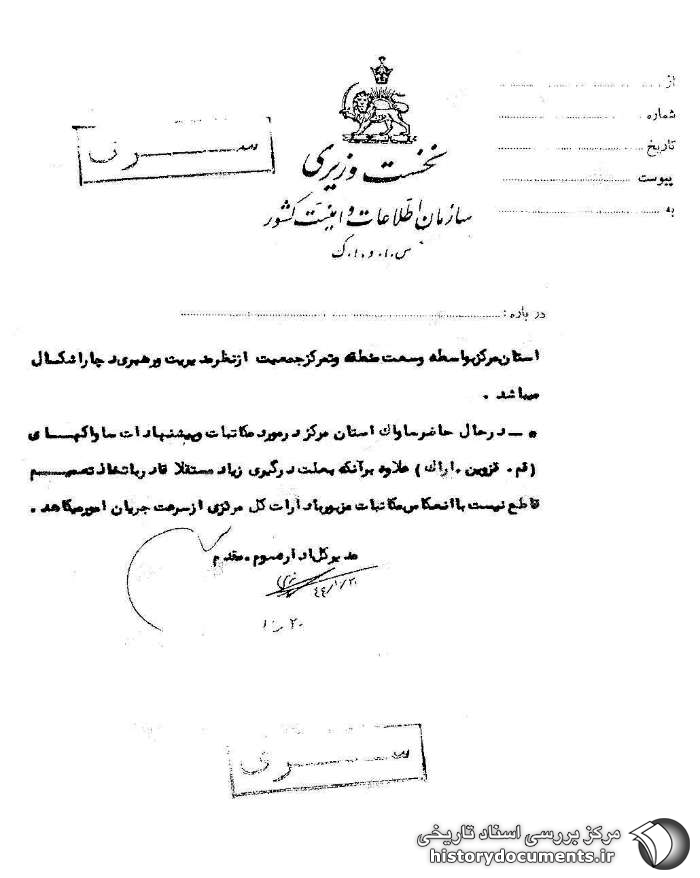 از
شماره
تاریخ
پیوست
به
سری
نخست وزیری
سازمان اطلاعات و امنیت کشور
س.ا.و.ا.ک
در باره :
استان مرکز بواسطه وسعت منطقه و تمرکز جمعیت از نظر مدیریت و رهبری دچار اشکال
میباشد .
* ـ در حال حاضر ساواک استان مرکز در مورد مکاتبات و پیشنهادات ساواکهای
( قم . قزوین . اراک ) علاوه بر آنکه بعلت درگیری زیاد مستقلا قادر باتخاذ تصمیم
قاطع نیست با انعکاس مکاتبات مزبور بادارات کل مرکزی از سرعت جریان امور میکاهد .
مدیر کل اداره سوم . مقدم
۴۴/۱/۲۰
سری
مرکز بررسی اسناد تاریخی
historydocuments.ir